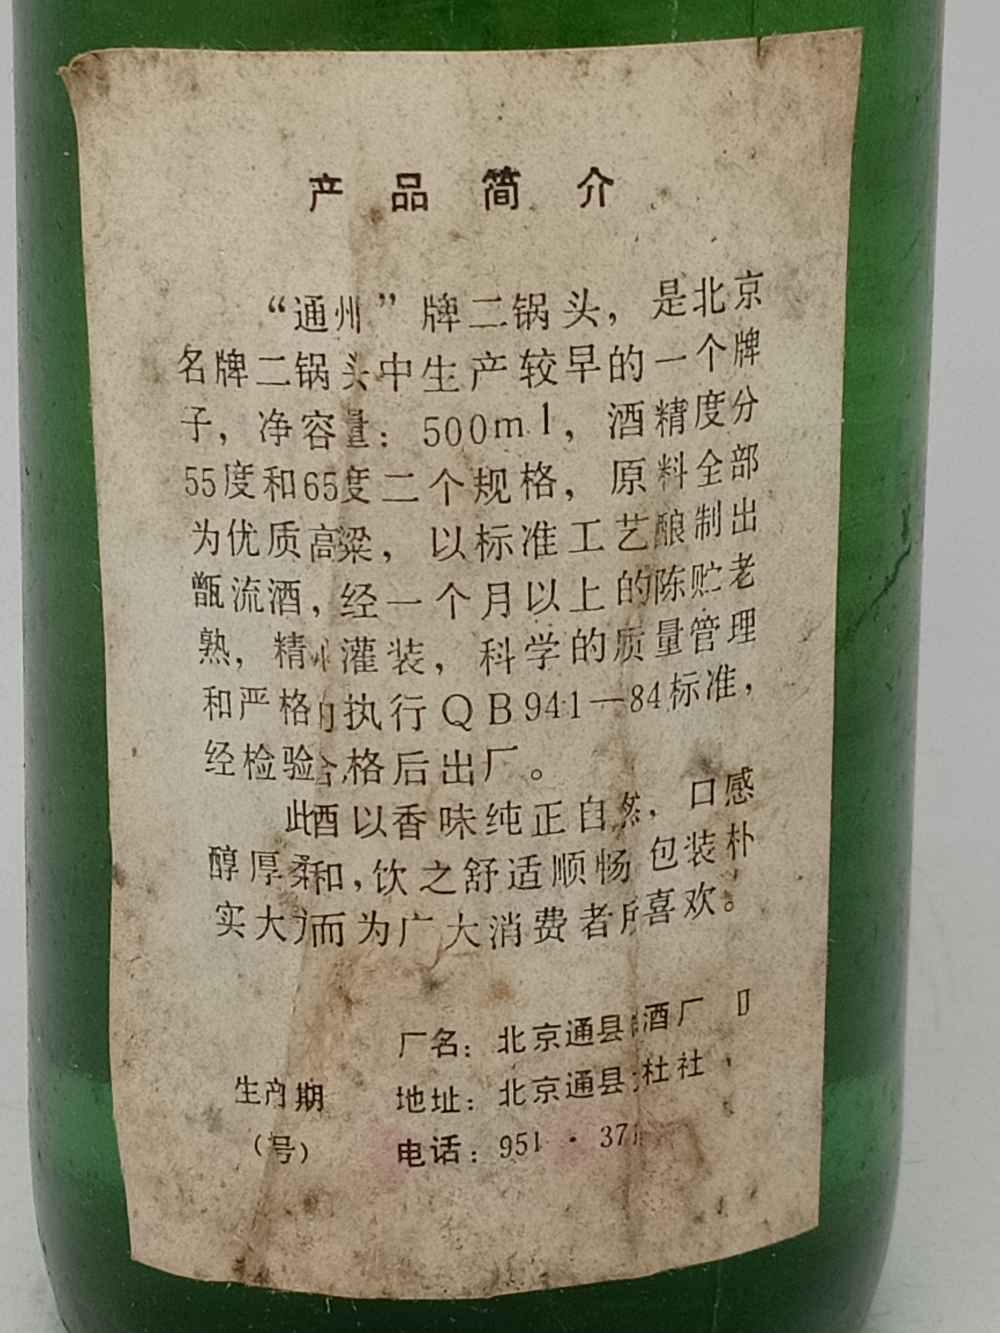 产品简介
“通州”牌二锅头，是北京
名牌二锅头中生产较早的一个牌
子，净容量：500ml，酒精度分
55度和65度二个规格，原料全部
为优质高粱，以标准工艺酿制出
甑流酒，经一个月以上的陈贮老
熟，精 灌装，科学的质量管理
和严格的执行QB941—84标准，
经检验合格后出厂。
此酒以香味纯正自然，口感
醇厚柔和，饮之舒适顺畅 包装朴
实大方而为广大消费者所喜欢。
厂名：北京通县 酒厂
地址：北京通县 杜社
电话：951·371
生产期
（号）